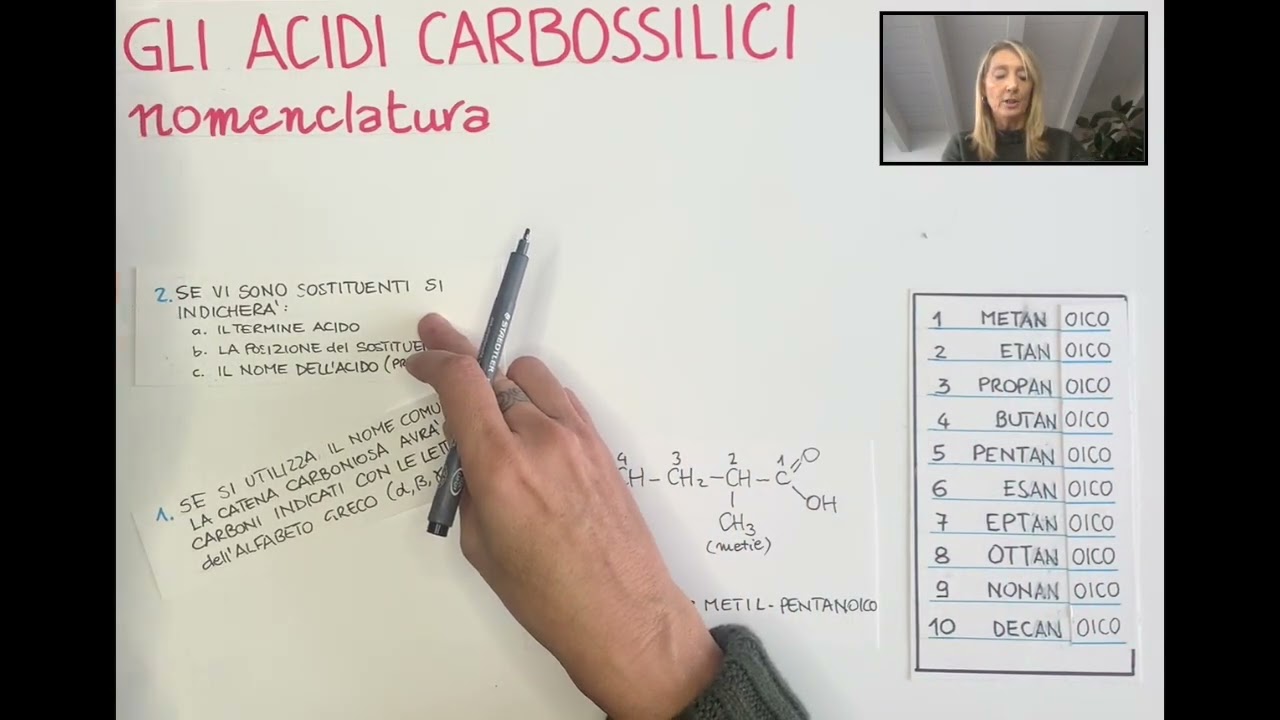 GLI ACIDI CARBOSSILICI
nomenclatura
2. SE VI SONO SOSTITUENTI SI
INDICHERA':
a. IL TERMINE ACIDO
b. LA POSIZIONE del
c. IL NOME DELL'ACIDO
1. SE SI UTILIZZA IL NOME
LA CATENA CARBONIOSA AVRA'
CARBONI INDICATI CON LE
dell'ALFABETO GRECO (α, β,
STAEDTLER
4 3 2 1 O
CH-CH₂-CH-C
OH
CH₃
(metile)
METIL-PENTANOICO
1 METAN OICO
2 ETAN OICO
3 PROPAN OICO
4 BUTAN OICO
5 PENTAN OICO
6 ESAN OICO
7 EPTAN OICO
8 OTTAN OICO
9 NONAN OICO
10 DECAN OICO